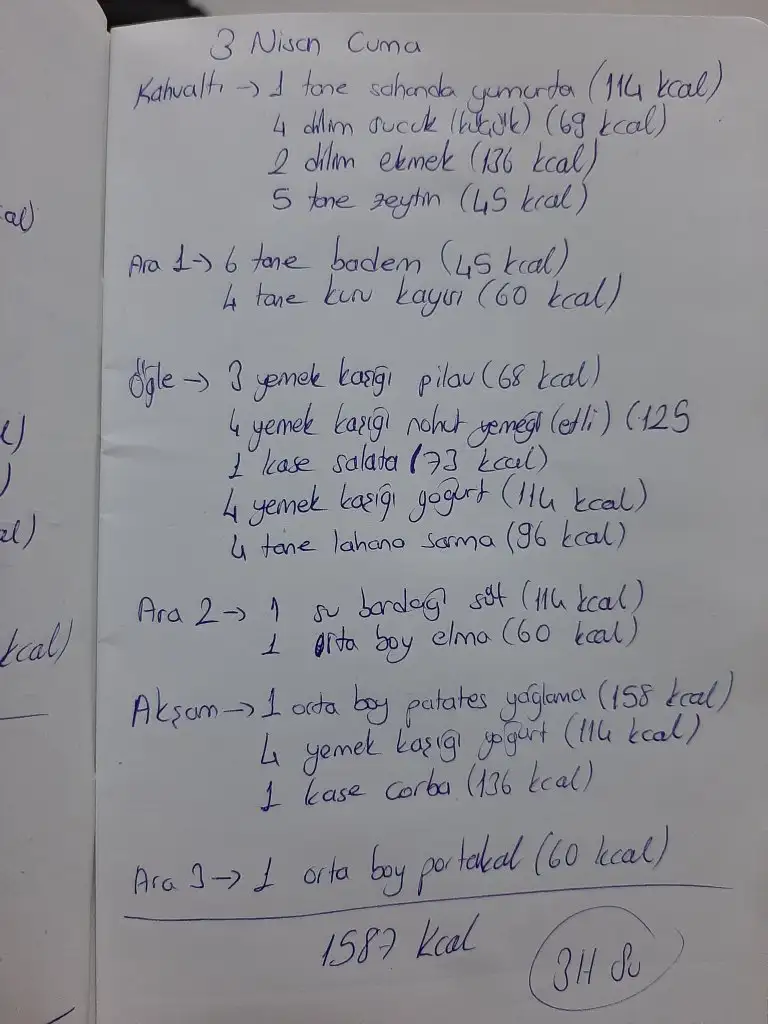 3 Nisan Cuma
Kahvaltı → 1 tane sahanda yumurta (114 kcal)
4 dilim sucuk (küçük) (69 kcal)
2 dilim ekmek (136 kcal)
5 tane zeytin (45 kcal)
Ara 1 → 6 tane badem (45 kcal)
4 tane kuru kayısı (60 kcal)
Öğle → 3 yemek kaşığı pilav (68 kcal)
4 yemek kaşığı nohut yemeği (etli) (125
1 kase salata (73 kcal)
4 yemek kaşığı yoğurt (114 kcal)
4 tane lahana sarma (96 kcal)
Ara 2 → 1 su bardağı süt (114 kcal)
1 orta boy elma (60 kcal)
Akşam → 1 orta boy patates yağlama (158 kcal)
4 yemek kaşığı yoğurt (114 kcal)
1 kase çorba (136 kcal)
Ara 3 → 1 orta boy portakal (60 kcal)
1587 kcal
3 lt su
al)
l)
)
al)
kcal)